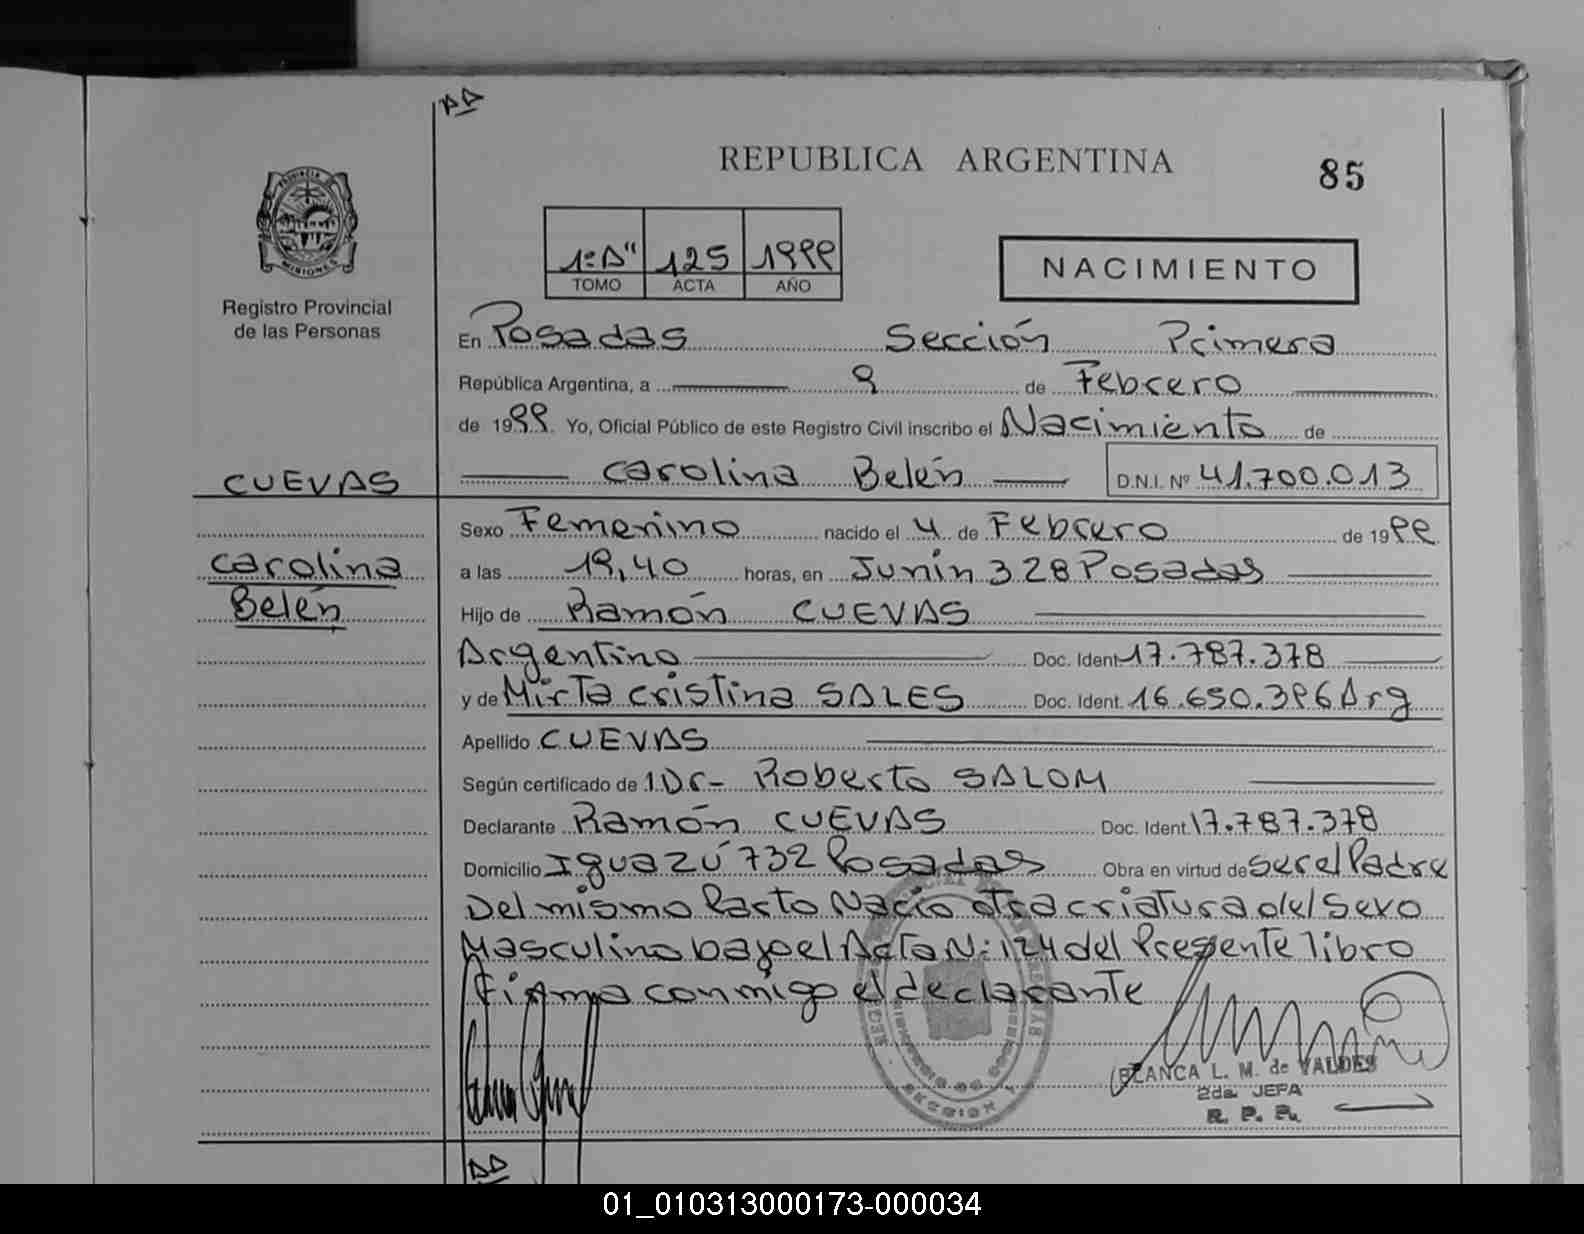 AA
REPUBLICA ARGENTINA
85
PROVINCIA DE MISIONES
Registro Provincial
de las Personas
1º A" 125 1999
TOMO ACTA AÑO
NACIMIENTO
En Posadas Sección Primera
República Argentina, a 9 de Febrero
de 1999. Yo, Oficial Público de este Registro Civil inscribo el Nacimiento de
CUEVAS
Carolina Belén D.N.I. Nº 41.700.013
Sexo Femenino nacido el 4 de Febrero de 1999
Carolina
Belén
a las 19,40 horas, en Junín 328 Posadas
Hijo de Ramón CUEVAS
Argentino Doc. Ident 17.787.378
y de Mirta Cristina SALES Doc. Ident. 16.650.396 Arg
Apellido CUEVAS
Según certificado de 1 Dr- Roberto SALOM
Declarante Ramón CUEVAS Doc. Ident. 17.787.378
Domicilio Iguazú 732 Posadas Obra en virtud de ser el Padre
Del mismo Parto Nació otra criatura del Sexo
Masculino bajo el Acta N: 124 del Presente libro
Firma conmigo el declarante
BLANCA L. M. de VALDES
2da. JEFA
R. P. P.
AA
01_010313000173-000034